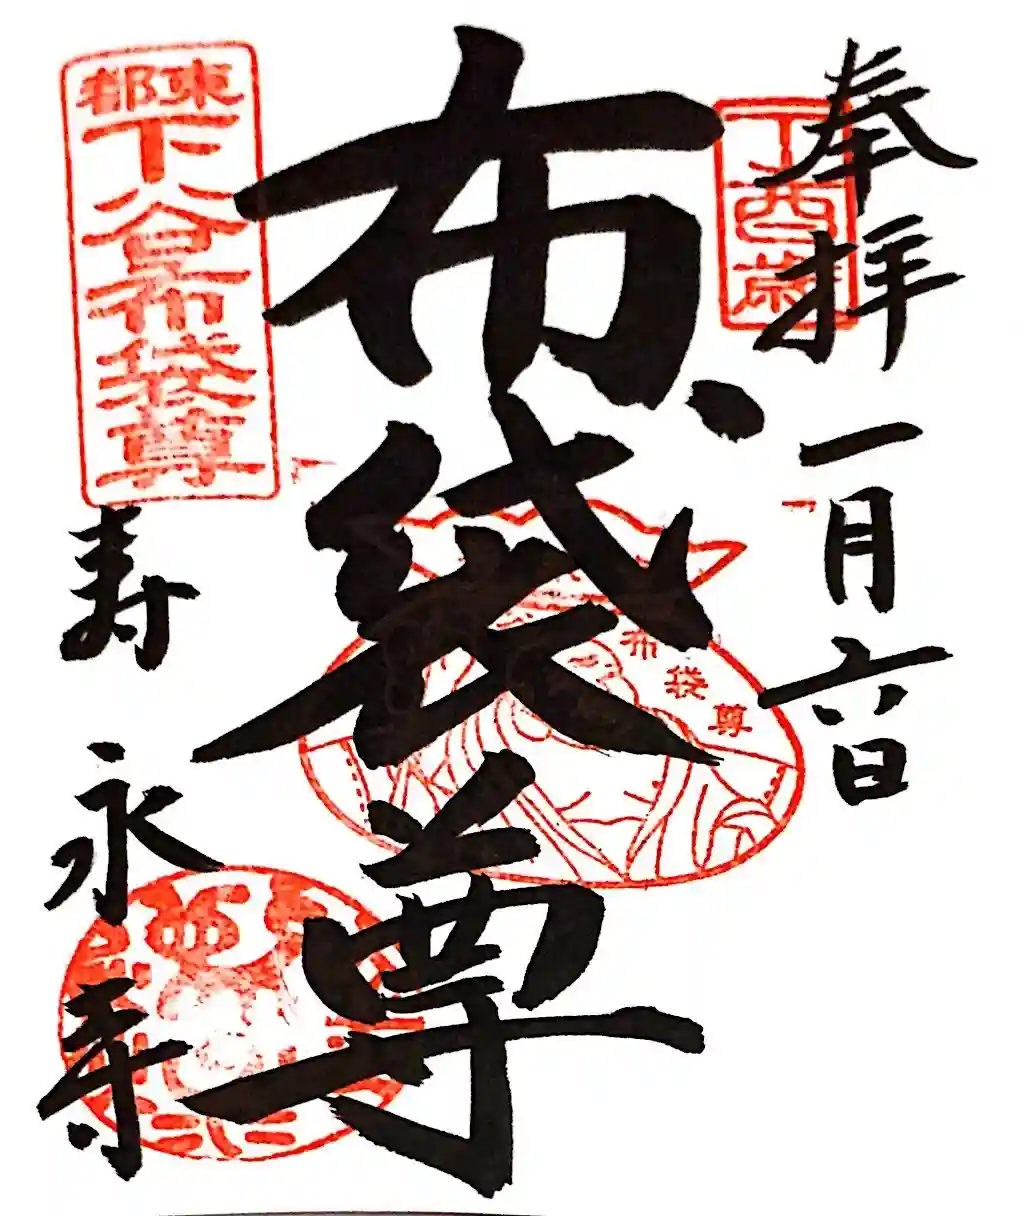 奉拝
一月六日
丁酉歳
布袋尊
布袋尊
東都
下谷布袋尊
寿
永寺